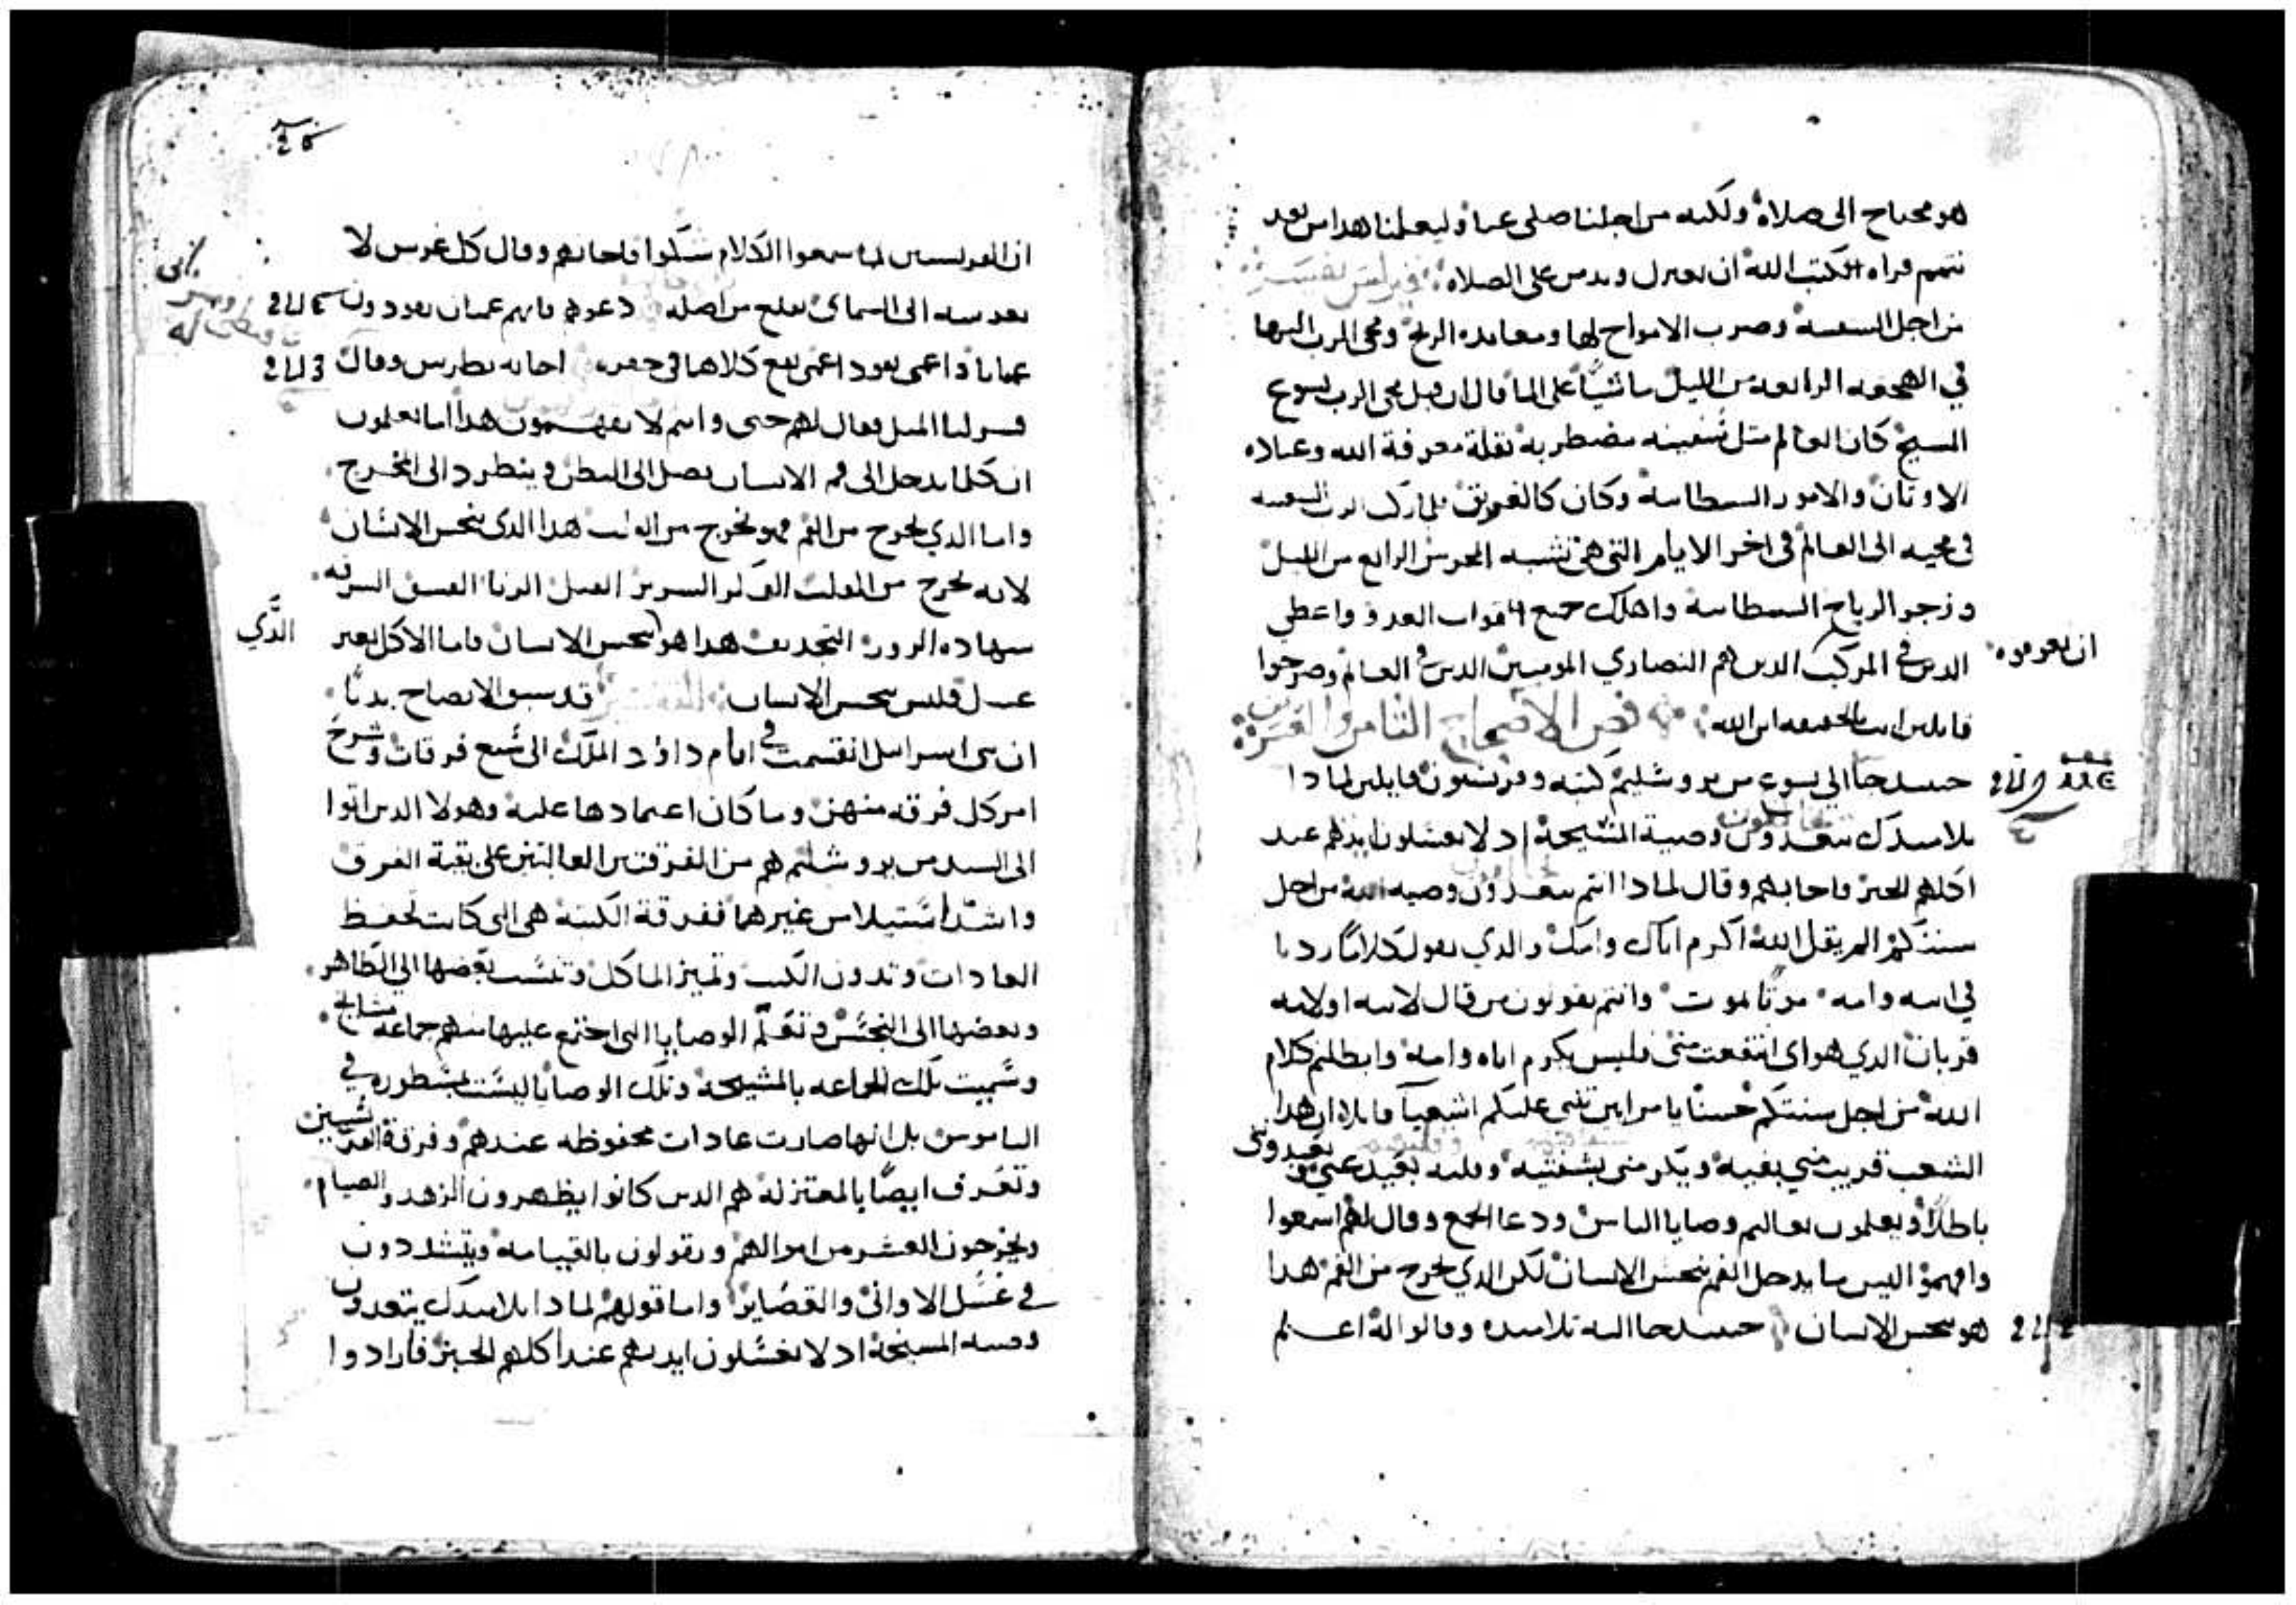 هو محتاج الى صلاة ولكنه من اجلنا صلى عنا وليعلمنا هدا من بعد
تتميم قراه الكتب الله ان نعتزل وندمن على الصلاه
من اجل السفينه وضرب الامواج لها ومعانده الريح ومجى الرب اليها
في الهجعه الرابعه من الليل ماشيًا على الما قال ان قبل مجى الرب يسوع
المسيح كان العالم مثل سفينه مضطربه بقلة معرفة الله وعباده
الاوتان والامور الشيطانيه وكان كالغريق فلما ركب الرب السفينه
في مجيه الى العالم في اخر الايام التى هى تشبه المحرس الرابع من الليل
وزجر الرياح الشيطانيه واهلك جميع قوات العدو واعطي
الدين في المركب الدين هم النصاري المومنين الدين في العالم وصرخوا
ان يعرفوه
قايلين انت بالحقيقه ابن الله فص الاصحاح التامن والعشرين
حينيد جا الى يسوع من يروشليم كتبه وفريسيون قايلين لمادا
تلاميدك يتعدون وصية المشيخة اد لا يغسلون ايديهم عند
اكلهم الخبز فاجابهم وقال لمادا انتم تتعدون وصيه الله من اجل
سنتكم الم يقل الله اكرم اباك وامك والدي يقول كلامًا رديا
في ابيه وامه موتًا يموت وانتم تقولون من قال لابيه او لامه
قربان الدي هو اى انتفعت منى فليس يكرم اباه وامه وابطلتم كلام
الله من اجل سنتكم حسنًا يا مرايين تنبى عليكم اشعيا قايلا ان هدا
الشعب قريب مني بفيه ويكرمنى بشفتيه وقلبه بعيد عني
يعبدونى
باطلًا ويعلمون تعاليم وصايا الناس ودعا الجمع وقال لهم اسمعوا
وافهموا ليس ما يدخل الفم ينجس الانسان لكن الدي يخرج من الفم هدا
هو ينجس الانسان حينيد جا اليه تلاميده وقالوا له اعلم
ان الفريسيين لما سمعوا الكلام شكوا فاجابهم وقال كل غرس لا
يغرسه ابي السمائ يقلع من اصله دعوهم فانهم عميان يقودون
عميانا واعمى يقود اعمى يقع كلاهما في حفره اجابه بطرس وقال
فسر لنا المثل فقال لهم حتى وانتم لا تفهمون هدا اما تعلمون
ان كلما يدخل الى فم الانسان يصل الى البطن وينطرد الى المخرج
واما الدي يخرج من الفم فهو يخرج من القلب هدا الدى ينجس الانسان
لانه يخرج من القلب الفكر السرير القتل الزنا الفسق السرقه
شهاده الزور التجديف هدا هو ينجس الانسان فاما الاكل بغير
الَّدي
غسل فليس ينجس الانسان التفسير قد سبق الايضاح بدنا
ان بنى اسراييل انقسمت في ايام داؤد الملك الى سبع فرقات وشرح
امر كل فرقه منهن وما كان اعتمادها عليه وهولا الدين اتوا
الى السيد من يروشليم هم من الفرقتين العاليتين على بقية الفرق
واشد استيلا من غيرهما ففرقة الكتبة هى التى كانت تحفظ
العادات وتدون الكتب وتميز الماكل وتنسب بعضها الى الطاهر
وبعضها الى النجس وتعلم الوصايا التى اجتمع عليها منهم جماعه مشايخ
وسميت تلك الجماعه بالمشيخة وتلك الوصايا ليست بمسطوره في
الناموس بل انها صارت عادات محفوظه عندهم وفرقة الفريسيين
وتعرف ايضًا بالمعتزله هم الدين كانوا يظهرون الزهد والصيام
ويخرجون العشر من اموالهم ويقولون بالقيامه ويتشددون
في غسل الاوانى والقصاير واما قولهم لمادا تلاميدك يتعدون
وصيه المشيخة اد لا يغسلون ايديهم عند اكلهم الخبز فارادوا